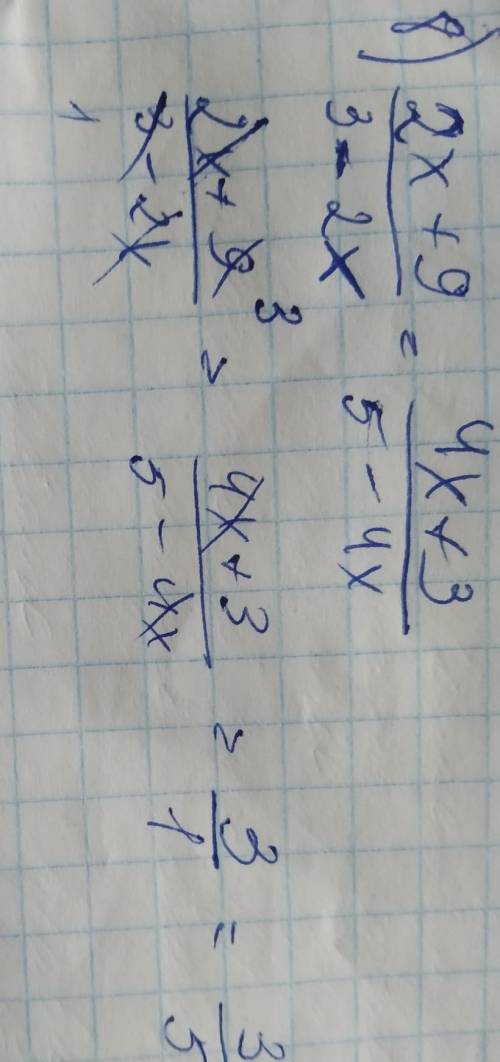 8)
2x + 9 / 3 - 2x = 4x + 3 / 5 - 4x
2x + 9 3 / 3 - 2x 1 = 4x + 3 / 5 - 4x = 3 / 1 = 3 / 5